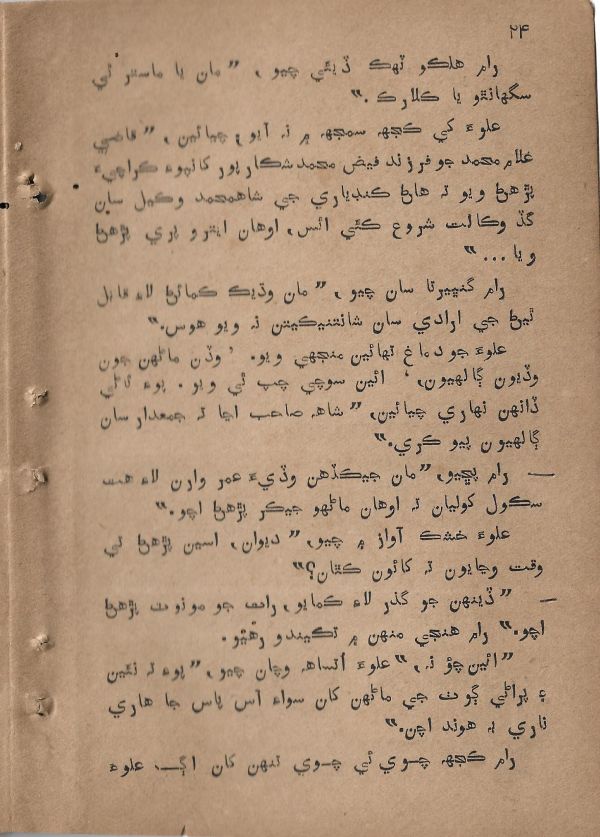 ۲۴
رام هلڪو ٽهڪ ڏيئي چيو، ”مان يا ماستر ٿي
سگهانٿو يا ڪلارڪ.“
علوءَ کي ڪجهہ سمجهہ ۾ نہ آيو، چيائين، ”قاضي
غلام محمد جو فرزند فيض محمد شڪارپور کانپوءِ ڪراچيءَ
پڙهڻ ويو تہ هاڻ ڪنڊياري جي شاهمحمد وڪيل سان
گڏ وڪالت شروع ڪئي اٿس، اوهان ايترو پري پڙهڻ
ويا...“
رام گنڀيرتا سان چيو، ”مان وڌيڪ ڪمائڻ لاءِ قابل
ٿيڻ جي ارادي سان شانتنيڪيتن نہ ويو هوس.“
علوءَ جو دماغ تهائين منجهي ويو. ’وڏن ماڻهن جون
وڏيون ڳالهيون،‘ ائين سوچي چپ ٿي ويو. پوءِ ٿاڻي
ڏانهن نهاري چيائين، ”شاهہ صاحب اڃا تہ جمعدار سان
ڳالهيون پيو ڪري.“
— رام پڇيو، ”مان جيڪڏهن وڏيءَ عمر وارن لاءِ هت
سڪول کوليان تہ اوهان ماڻهو جيڪر پڙهڻ اچو.“
علوءَ خشڪ آواز ۾ چيو، ”ديوان، اسين پڙهڻ تي
وقت وڃايون تہ کائون ڪٿان؟“
— ”ڏينهن جو گذر لاءِ ڪمايو، رات جو مون وٽ پڙهڻ
اچو.“ رام هنجي منهن ۾ تڪيندو رهيو.
”ائين چؤ نہ،“ علوءَ اُتساهہ وچان چيو، ”پوءِ تہ نئين
۽ پراڻي ڳوٺ جي ماڻهن کان سواءِ آس پاس جا هاري
ناري بہ هوند اچن.“
رام ڪجهہ چوي ئي چوي تنهن کان اڳ، علوءَ